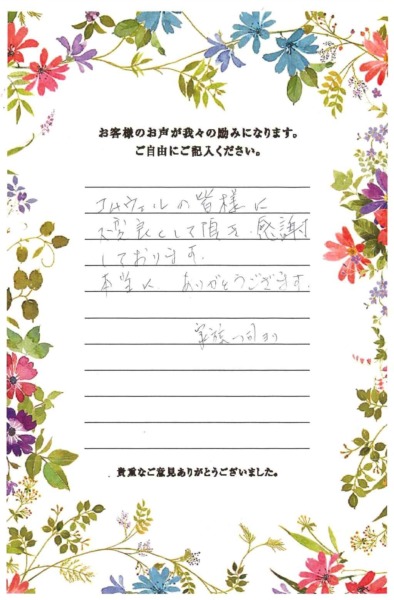 お客様のお声が我々の励みになります。
ご自由にご記入ください。
の皆様に
大変良くして頂き、感謝
しております。
本当に ありがとうございます。
家族一同より
貴重なご意見ありがとうございました。